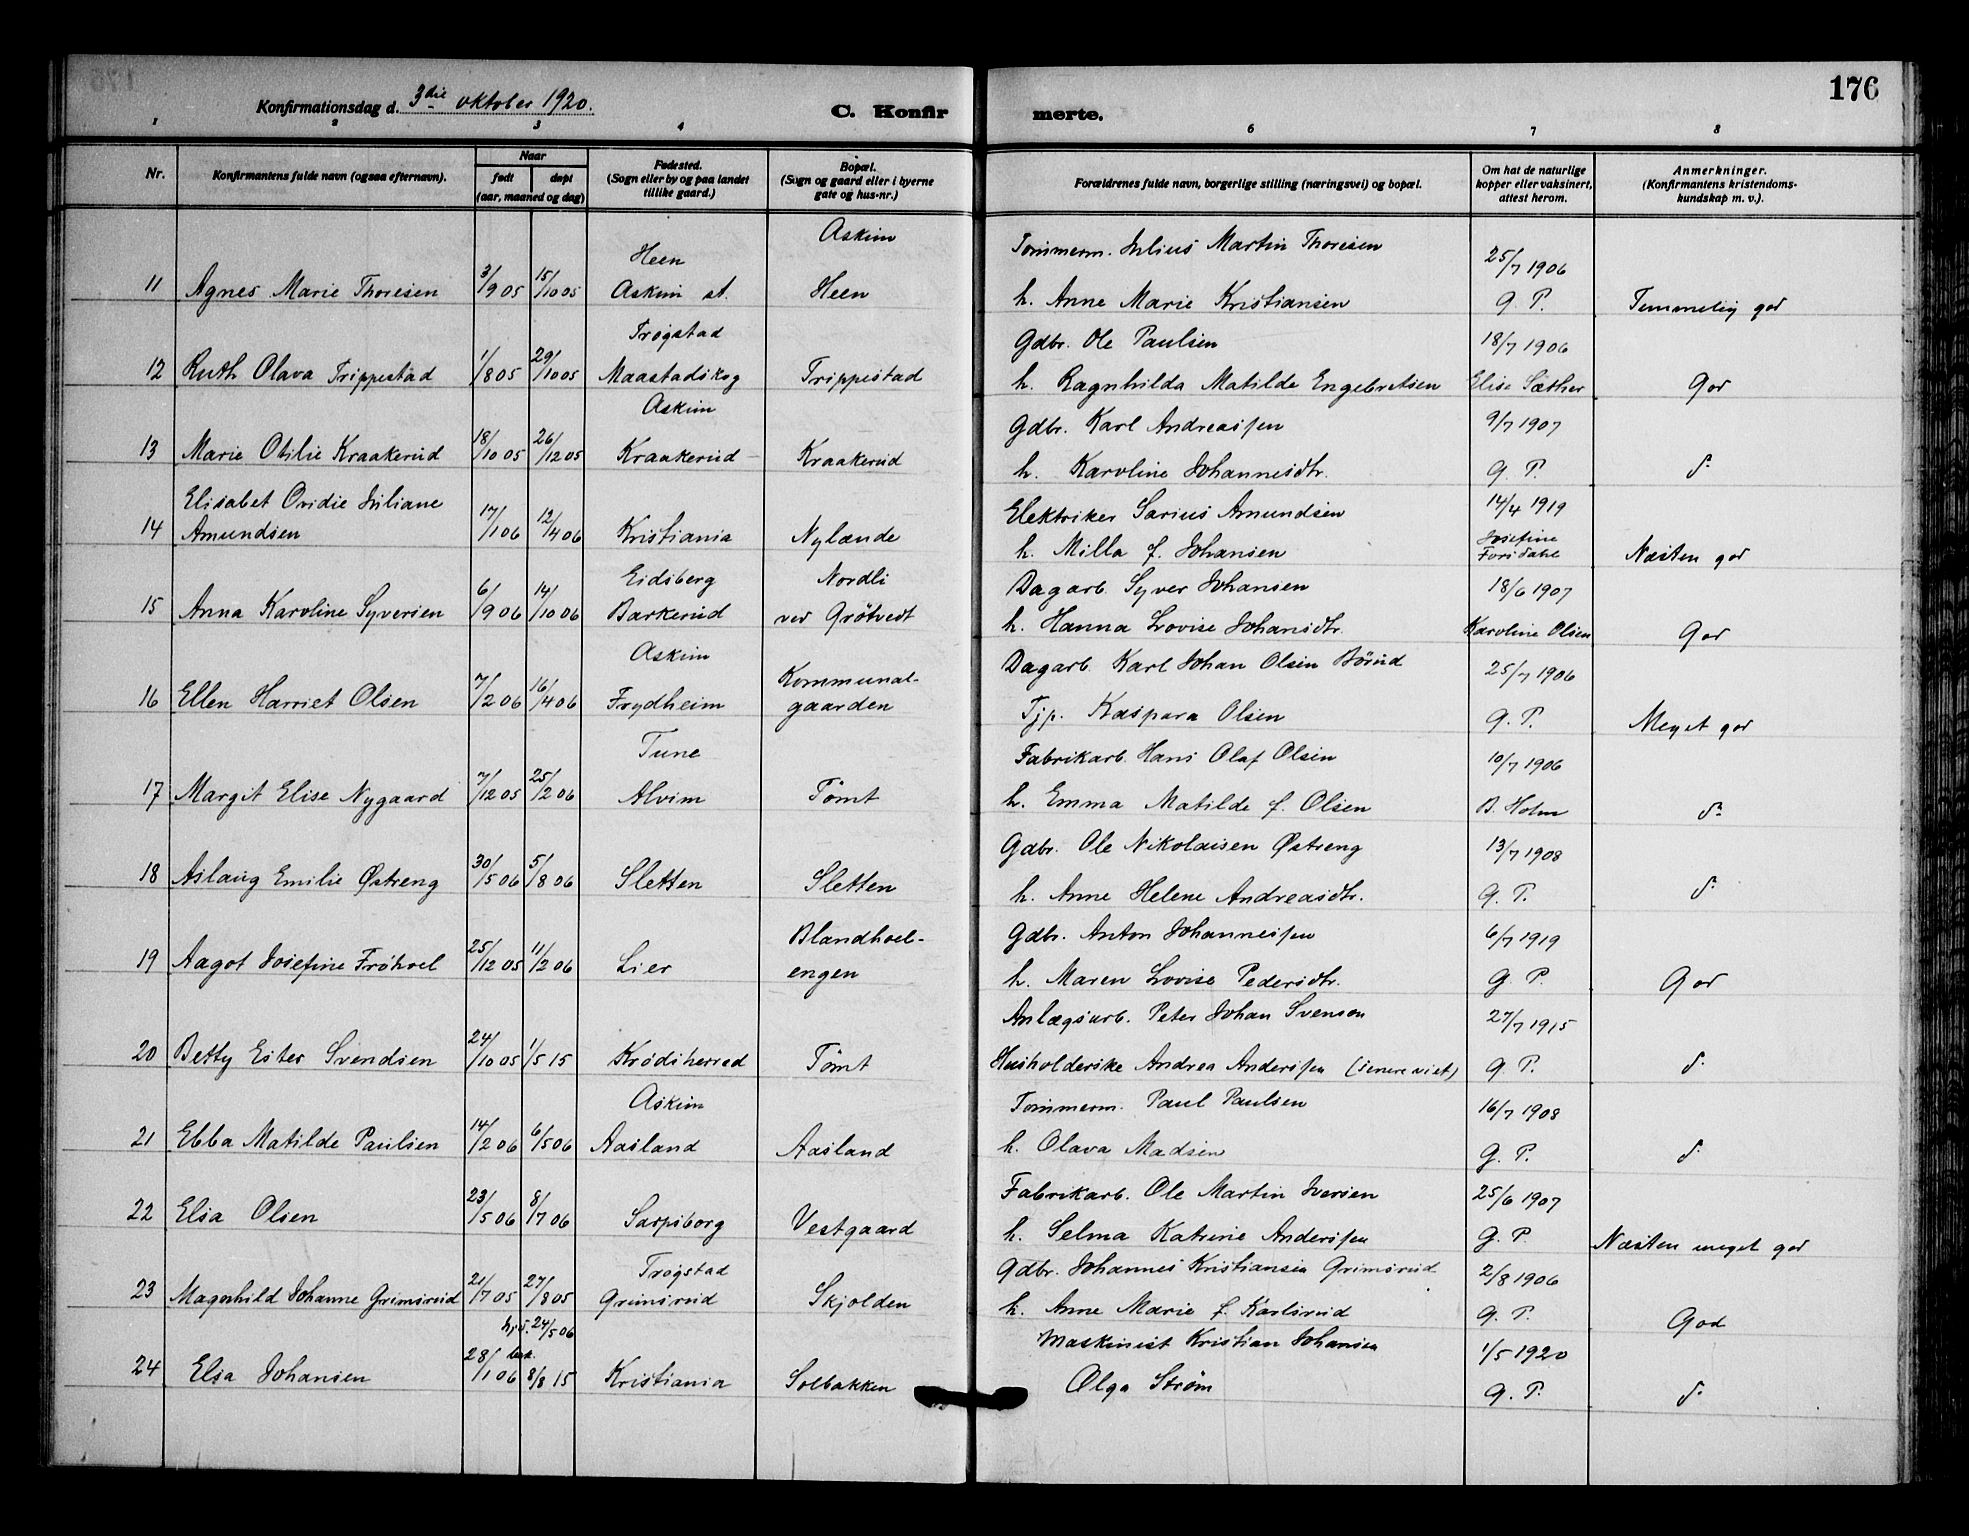 176
Konfirmationsdag d. 3die oktober 1920.
C. Konfirmerte.
1 2 3 4 6 7 8
Nr. Konfirmantens fulde navn (ogsaa efternavn). Naar født døpt (aar, maaned og dag) Fødested. (Sogn eller by og paa landet tillike gaard.) Bopæl. (Sogn og gaard eller i byerne gate og hus-nr.) Forældrenes fulde navn, borgerlige stilling (næringsvei) og bopæl. Om hat de naturlige kopper eller vaksinert, attest herom. Anmerkninger. (Konfirmantens kristendomskundskap m. v.).
Heen Askim Tømmerm. Julius Martin Thoresen 25/7 1906
11 Agnes Marie Thoresen 3/9 05 15/10 05 Askim st. Heen h. Anne Marie Kristiansen G. P. Temmelig god
Trøgstad Gdbr. Ole Paulsen 18/7 1906
12 Ruth Olava Trippestad 1/8 05 29/10 05 Maastadskog Trippestad h. Ragnhilda Matilde Engebretsen Elise Sæther God
Askim Gdbr. Karl Andreassen 9/7 1907
13 Marie Otilie Kraakerud 18/10 05 26/12 05 Kraakerud Kraakerud h. Karoline Johannesdtr. G. P. d°
Elisabet Ovidie Juliane Elektriker Sarius Amundsen 14/4 1919
14 Amundsen 17/1 06 12/4 06 Kristiania Nylænde h. Milla f. Johansen Josefine Forsdahl Næsten god
Eidsberg Nordli Dagarb. Syver Johansen 18/6 1907
15 Anna Karoline Syversen 6/9 06 14/10 06 Barkerud ved Grøtvedt h. Hanna Lovise Johansdtr. Karoline Olsen God
Askim Kommunal- Dagarb. Karl Johan Olsen Børud 25/7 1906
16 Ellen Harriet Olsen 7/2 06 16/4 06 Frydheim gaarden Tjp. Kaspara Olsen G. P. Meget god
Tune Fabrikarb. Hans Olaf Olsen 10/7 1906
17 Margit Elise Nygaard 7/12 05 25/2 06 Alvim Tømt h. Emma Matilde f. Olsen B. Holm d°
Gdbr. Ole Nikolaisen Østreng 13/7 1908
18 Aslaug Emilie Østreng 30/5 06 5/8 06 Sletten Sletten h. Anne Helene Andreasdtr. G. P. d°
Blandhoel- Gdbr. Anton Johannessen 6/7 1919
19 Aagot Josefine Frøhoel 25/12 05 11/2 06 Lier engen h. Maren Lovise Pedersdtr. G. P. God
Anlægsarb. Peter Johan Svenson 27/7 1915
20 Betty Ester Svendsen 24/10 05 1/5 15 Krødsherred Tømt Husholderske Andrea Anderssen (senere viet) G. P. d°
Askim Tømmerm. Paul Paulsen 16/7 1908
21 Ebba Matilde Paulsen 14/2 06 6/5 06 Aasland Aasland h. Olava Madsen G. P. d°
Fabrikarb. Ole Martin Iversen 25/6 1907
22 Elsa Olsen 23/5 06 8/7 06 Sarpsborg Vestgaard h. Selma Katrine Anderssen G. P. Næsten meget god
Trøgstad Gdbr. Johannes Kristiansen Grimsrud 2/8 1906
23 Magnhild Johanne Grimsrud 21/7 05 27/8 05 Grimsrud Skjolden h. Anne Marie f. Karlsrud G. P. God
hj.d. 24/5 06 Maskinist Kristian Johansen 1/5 1920
24 Elsa Johansen 28/1 06 bek. 8/8 15 Kristiania Solbakken Olga Strøm G. P. d°